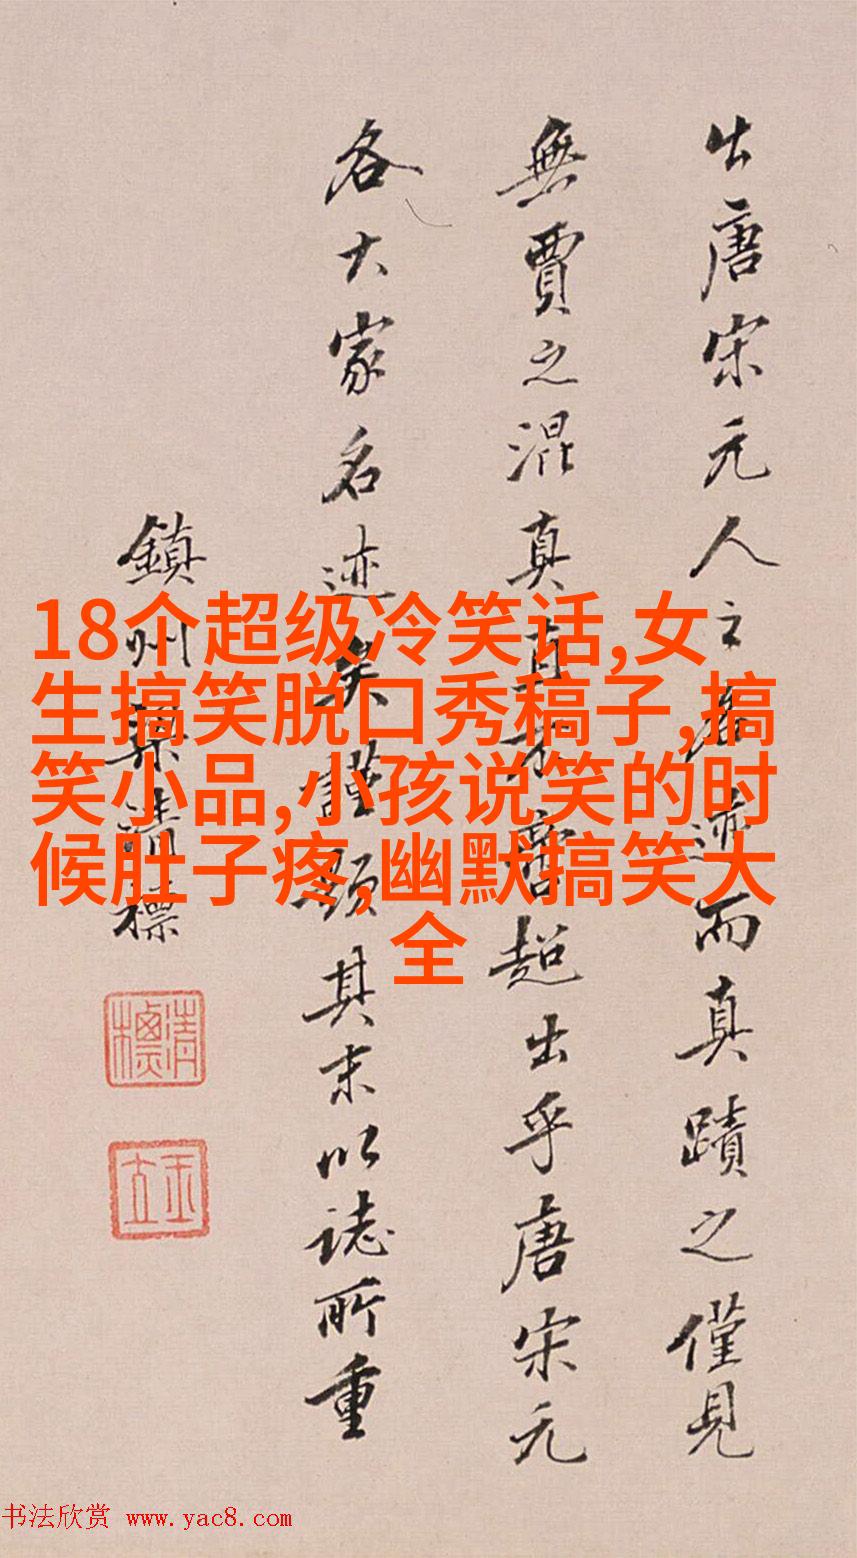 出唐宋元人之名迹而真蹟之僅見
無賈之混真真才賞超出乎唐宋元
各大家名迹矣謹題其末以誌所重
鎮州梁清標
清標
玉立
18个超级冷笑话,女
生搞笑脱口秀稿子,搞
笑小品,小孩说笑的时
候肚子疼,幽默搞笑大
全
书法欣赏 www.yac8.com